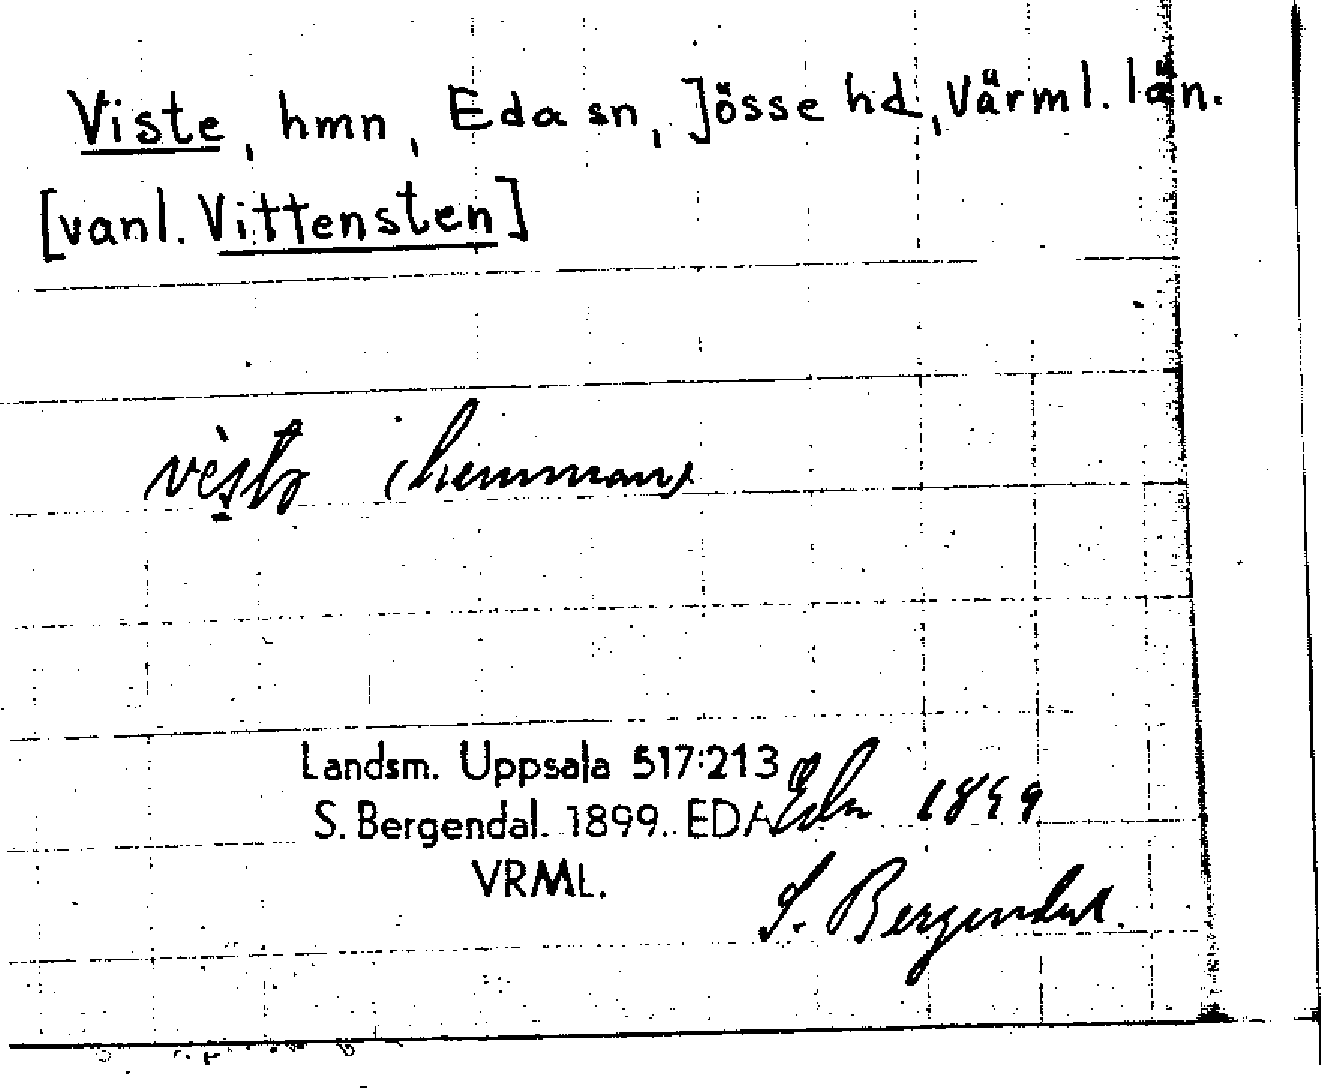 Viste, hmn, Eda sn, Jösse hd, Värml. län.
[vanl. Vittensten]
(hemman)
Landsm. Uppsala 517:213
S. Bergendal. 1899. EDA
VRML.
Eda 1899
S. Bergendal.